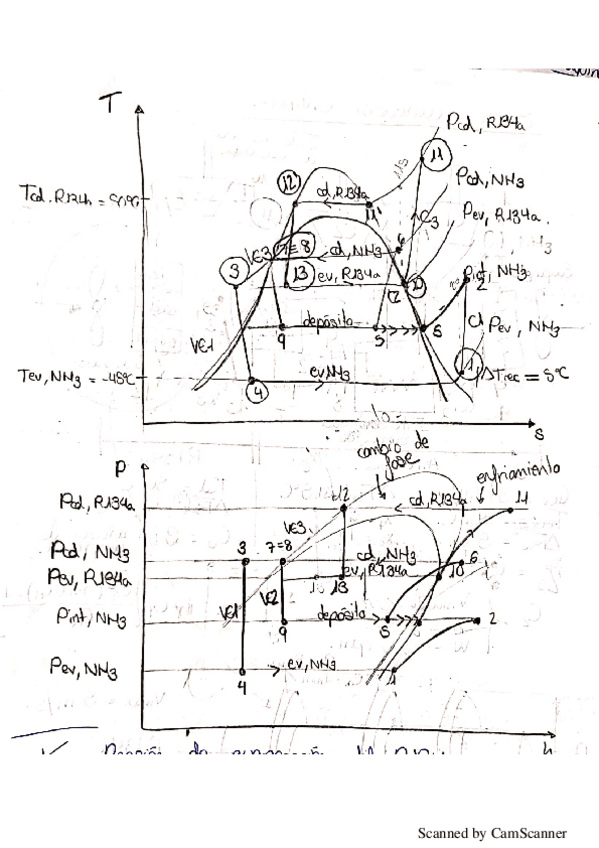 T
Pcd, R134a
11
Pcd, NH3
Pev, R134a
Pint, NH3
2
Pev, NH3
12
cd, R134a
11'
C3
Tcd, R134a =
VE3
7=8
cd, NH3
6
3
13
ev, R134a
10
VE1
9
depósito
5
4
ev, NH3
1
C1
Tev, NH3 = -45ºC
ΔTrec = 5ºC
s
cambio de
fase
enfriamiento
P
Pcd, R134a
12
cd, R134a
11
VE3
Pcd, NH3
3
7=8
cd, NH3
6
Pev, R134a
ev, R134a
13
10
VE1
VE2
Pint, NH3
9
depósito
5
2
Pev, NH3
4
ev, NH3
1
h
Scanned by CamScanner